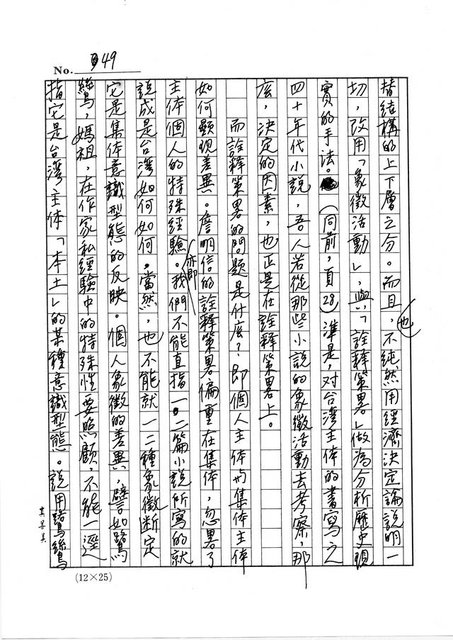 No. 頁49
替結構的上下層之分。而且,也不純然用經濟決定論說明一
切,改用「象徵活動」與「詮釋策略」做為分析歷史現
實的手法。(同前,頁28)準是,对台灣主体的書寫之
四十年代小説,吾人若從那些小説的象徵活動去考察,那
底,決定的因素,也正是在詮釋策畧上。
而詮釋策畧的問題是什底,即個人主体与集体主体
如何顯現差異。詹明信的詮釋策畧偏重在集体,忽畧了
主体個人的特殊經驗。亦即我們不能直指一二篇小説所寫的就
説成是台灣如何如何。當然,也不能就一二種象徵断定
它是集体意識型態的反映。個人象徵的差異,譬如鷺
鷥,媽祖,在作家私經驗中的特殊性要照顧,不能一逕
指它是台灣主体「本土」的某種意識型態。說用鷺鷥
(12×25)